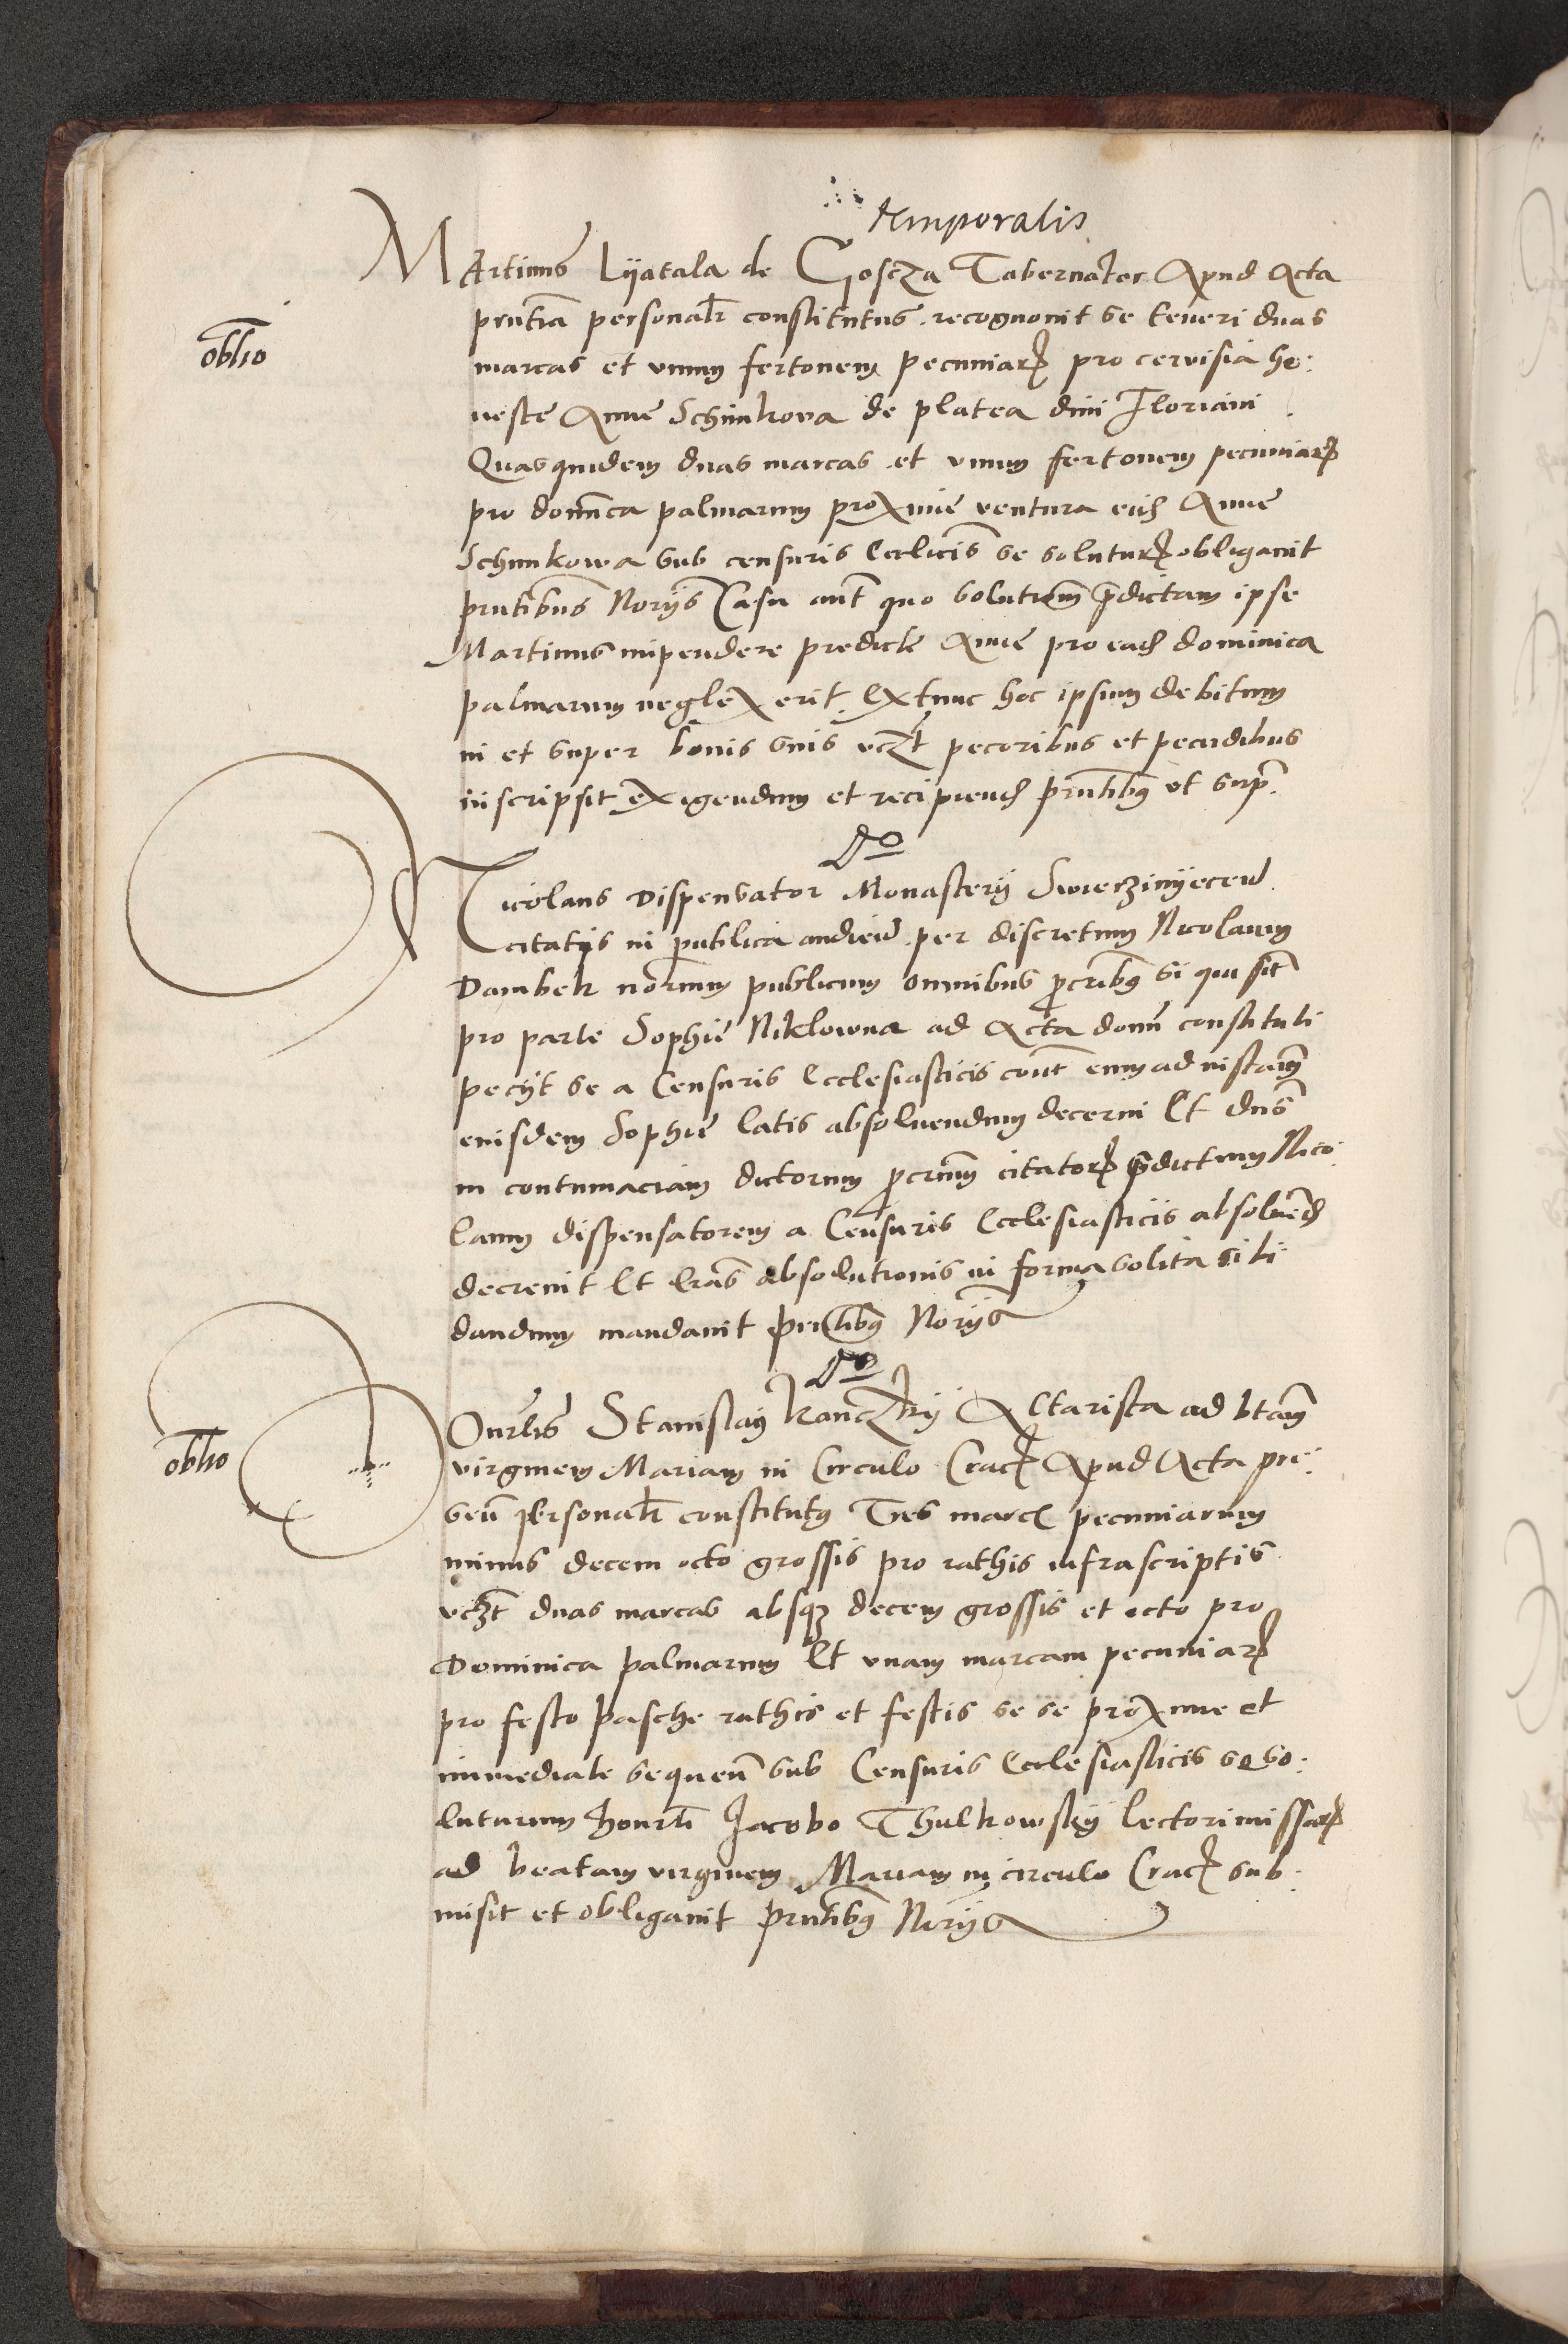 temporalis
MArtinus Lyatala de Goscza Tabernator Apud Acta
oblio
pñtia personalr constitutus recognouit se teneri duas
marcas et vnum fertonem pecuniar pro cervisia ho:
neste Anne Schimkova de platea diui Floriani
Quasquidem duas marcas et vnum fertonem pecuniar
pro domica palmarum proxime ventura eid Anne
Schimkowa sub censuris Ecclicis se solutur obligauit
pñtibus Norijs Casu aut quo solutiom pdictam ipse
Martinus inpendere predicte Anne pro ead dominica
palmarum neglexerit Extunc hoc ipsum debitum
in et super bonis suis vczt pecoribus et pecudibus
inscripsit exigendum et recipiend pñtibus vt supr
Do
Nicolaus Dispensator Monasterij Swierzinyecen
citatis in publica audien per discretum Nicolaum
Dambek norium publicum omnibus procribus si qui sit
pro parte Sophie Niklowna ad Acta domi constituti
pecijt se a Censuris Ecclesiasticis cont eum ad instam
eiusdem Sophie latis absoluendum decerni Et dns
in contumaciam dictorum procrum citator pdictum Nico
laum dispensatorem a Censuris Ecclesiasticis absoluend
decreuit Et lras absolutionis in forma solita sibi
dandum mandauit pntibus Norijs
Do
Honrlis Stanislaus Kanczky Altarista ad btam
oblio
virginem Mariam in Circulo Crac Apud Acta pre:
sen personalr constitutus Tres marc pecuniarum
minus decem octo grossis pro rathis infrascriptis
vczt duas marcas absque decem grossis et octo pro
Dominica palmarum Et vnam marcam pecuniar
pro festo pasche rathis et festis se se proxime et
immediate sequen sub Censuris Ecclesiasticis se so:
luturum honrli Jacobo Thulkowsky lectori missar
ad beatam virginem Mariam in circulo Crac sub:
misit et obligauit pñtibus Norijs